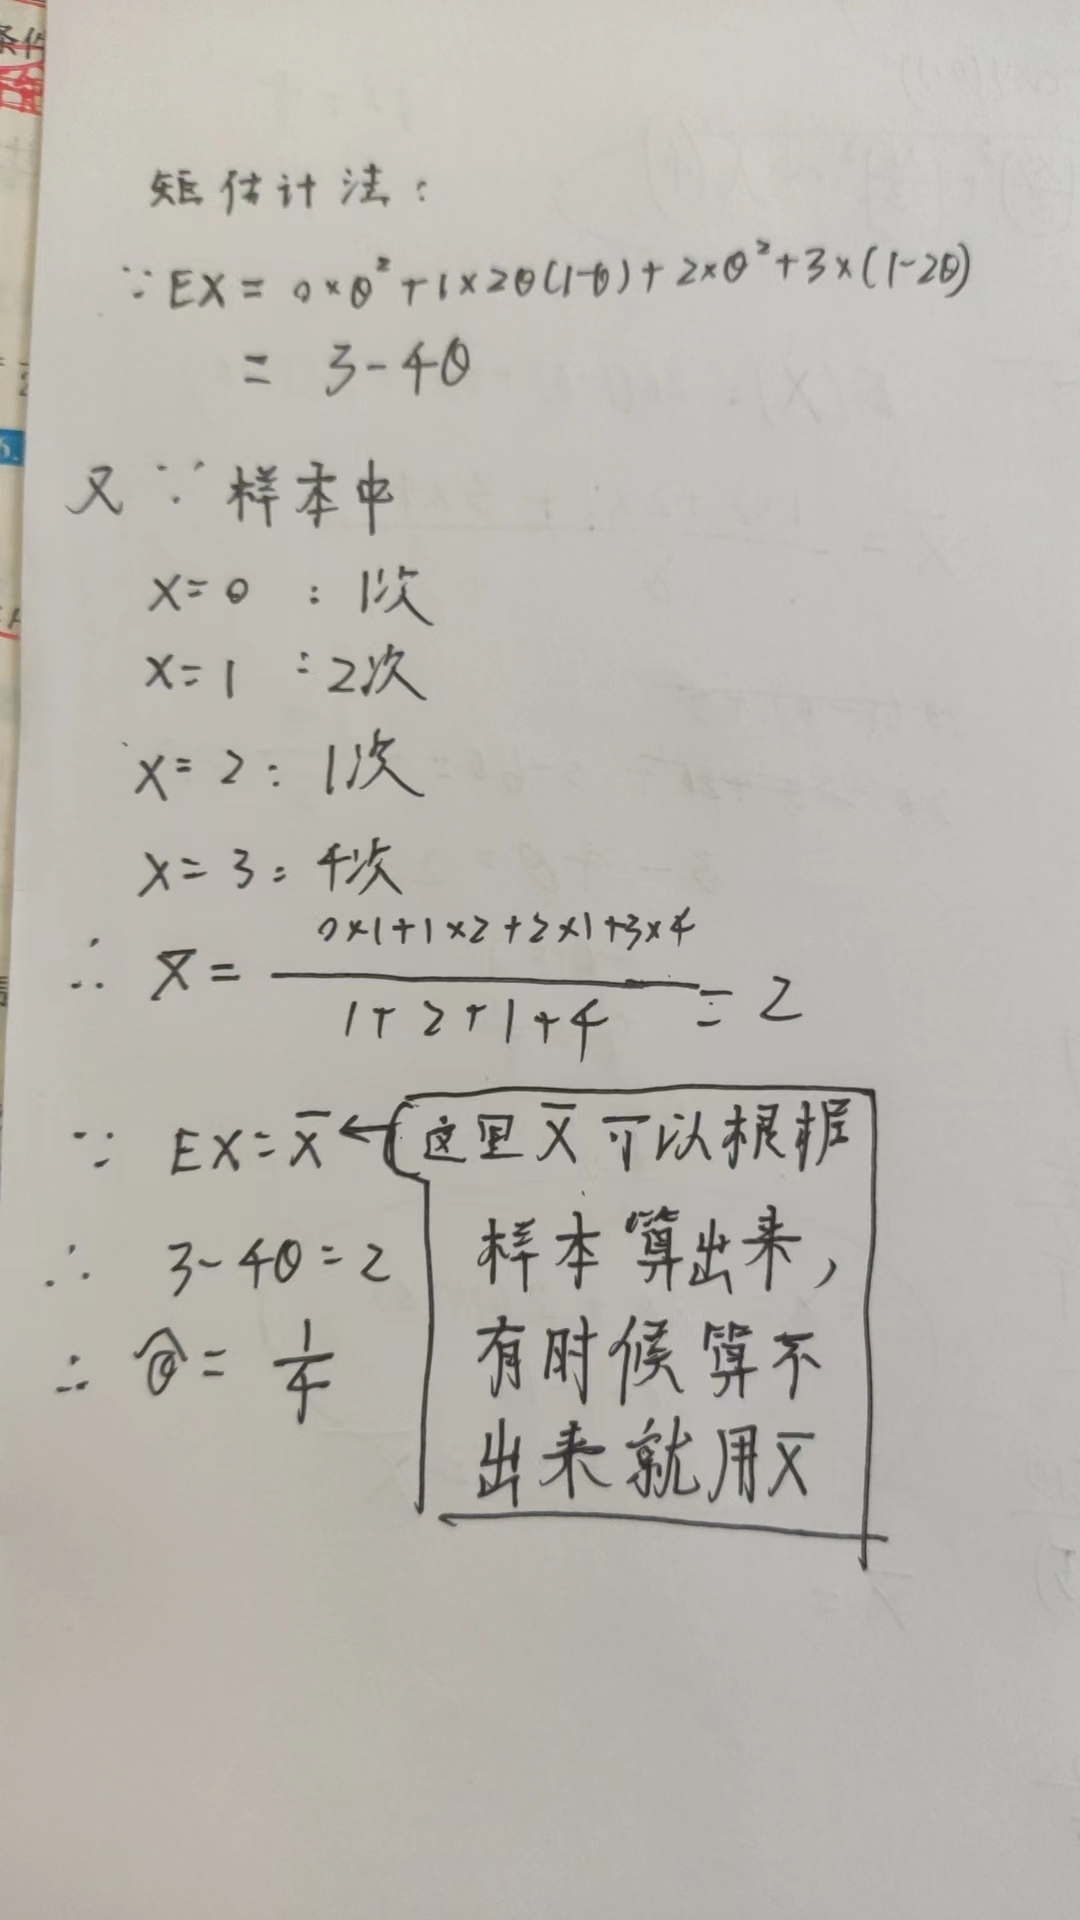 矩估计法:
∵EX = 0×θ²+1×2θ(1-θ)+2×θ²+3×(1-2θ)
= 3-4θ
又∵样本中
X=0 : 1次
X=1 : 2次
X=2 : 1次
X=3 : 4次
0×1+1×2+2×1+3×4
∴ X̄ = ——— = 2
1+2+1+4
∵ EX=X̄ ← 这里X̄可以根据
样本算出来,
有时候算不
出来就用X̄
∴ 3-4θ=2
∴ θ̂ = 1/4